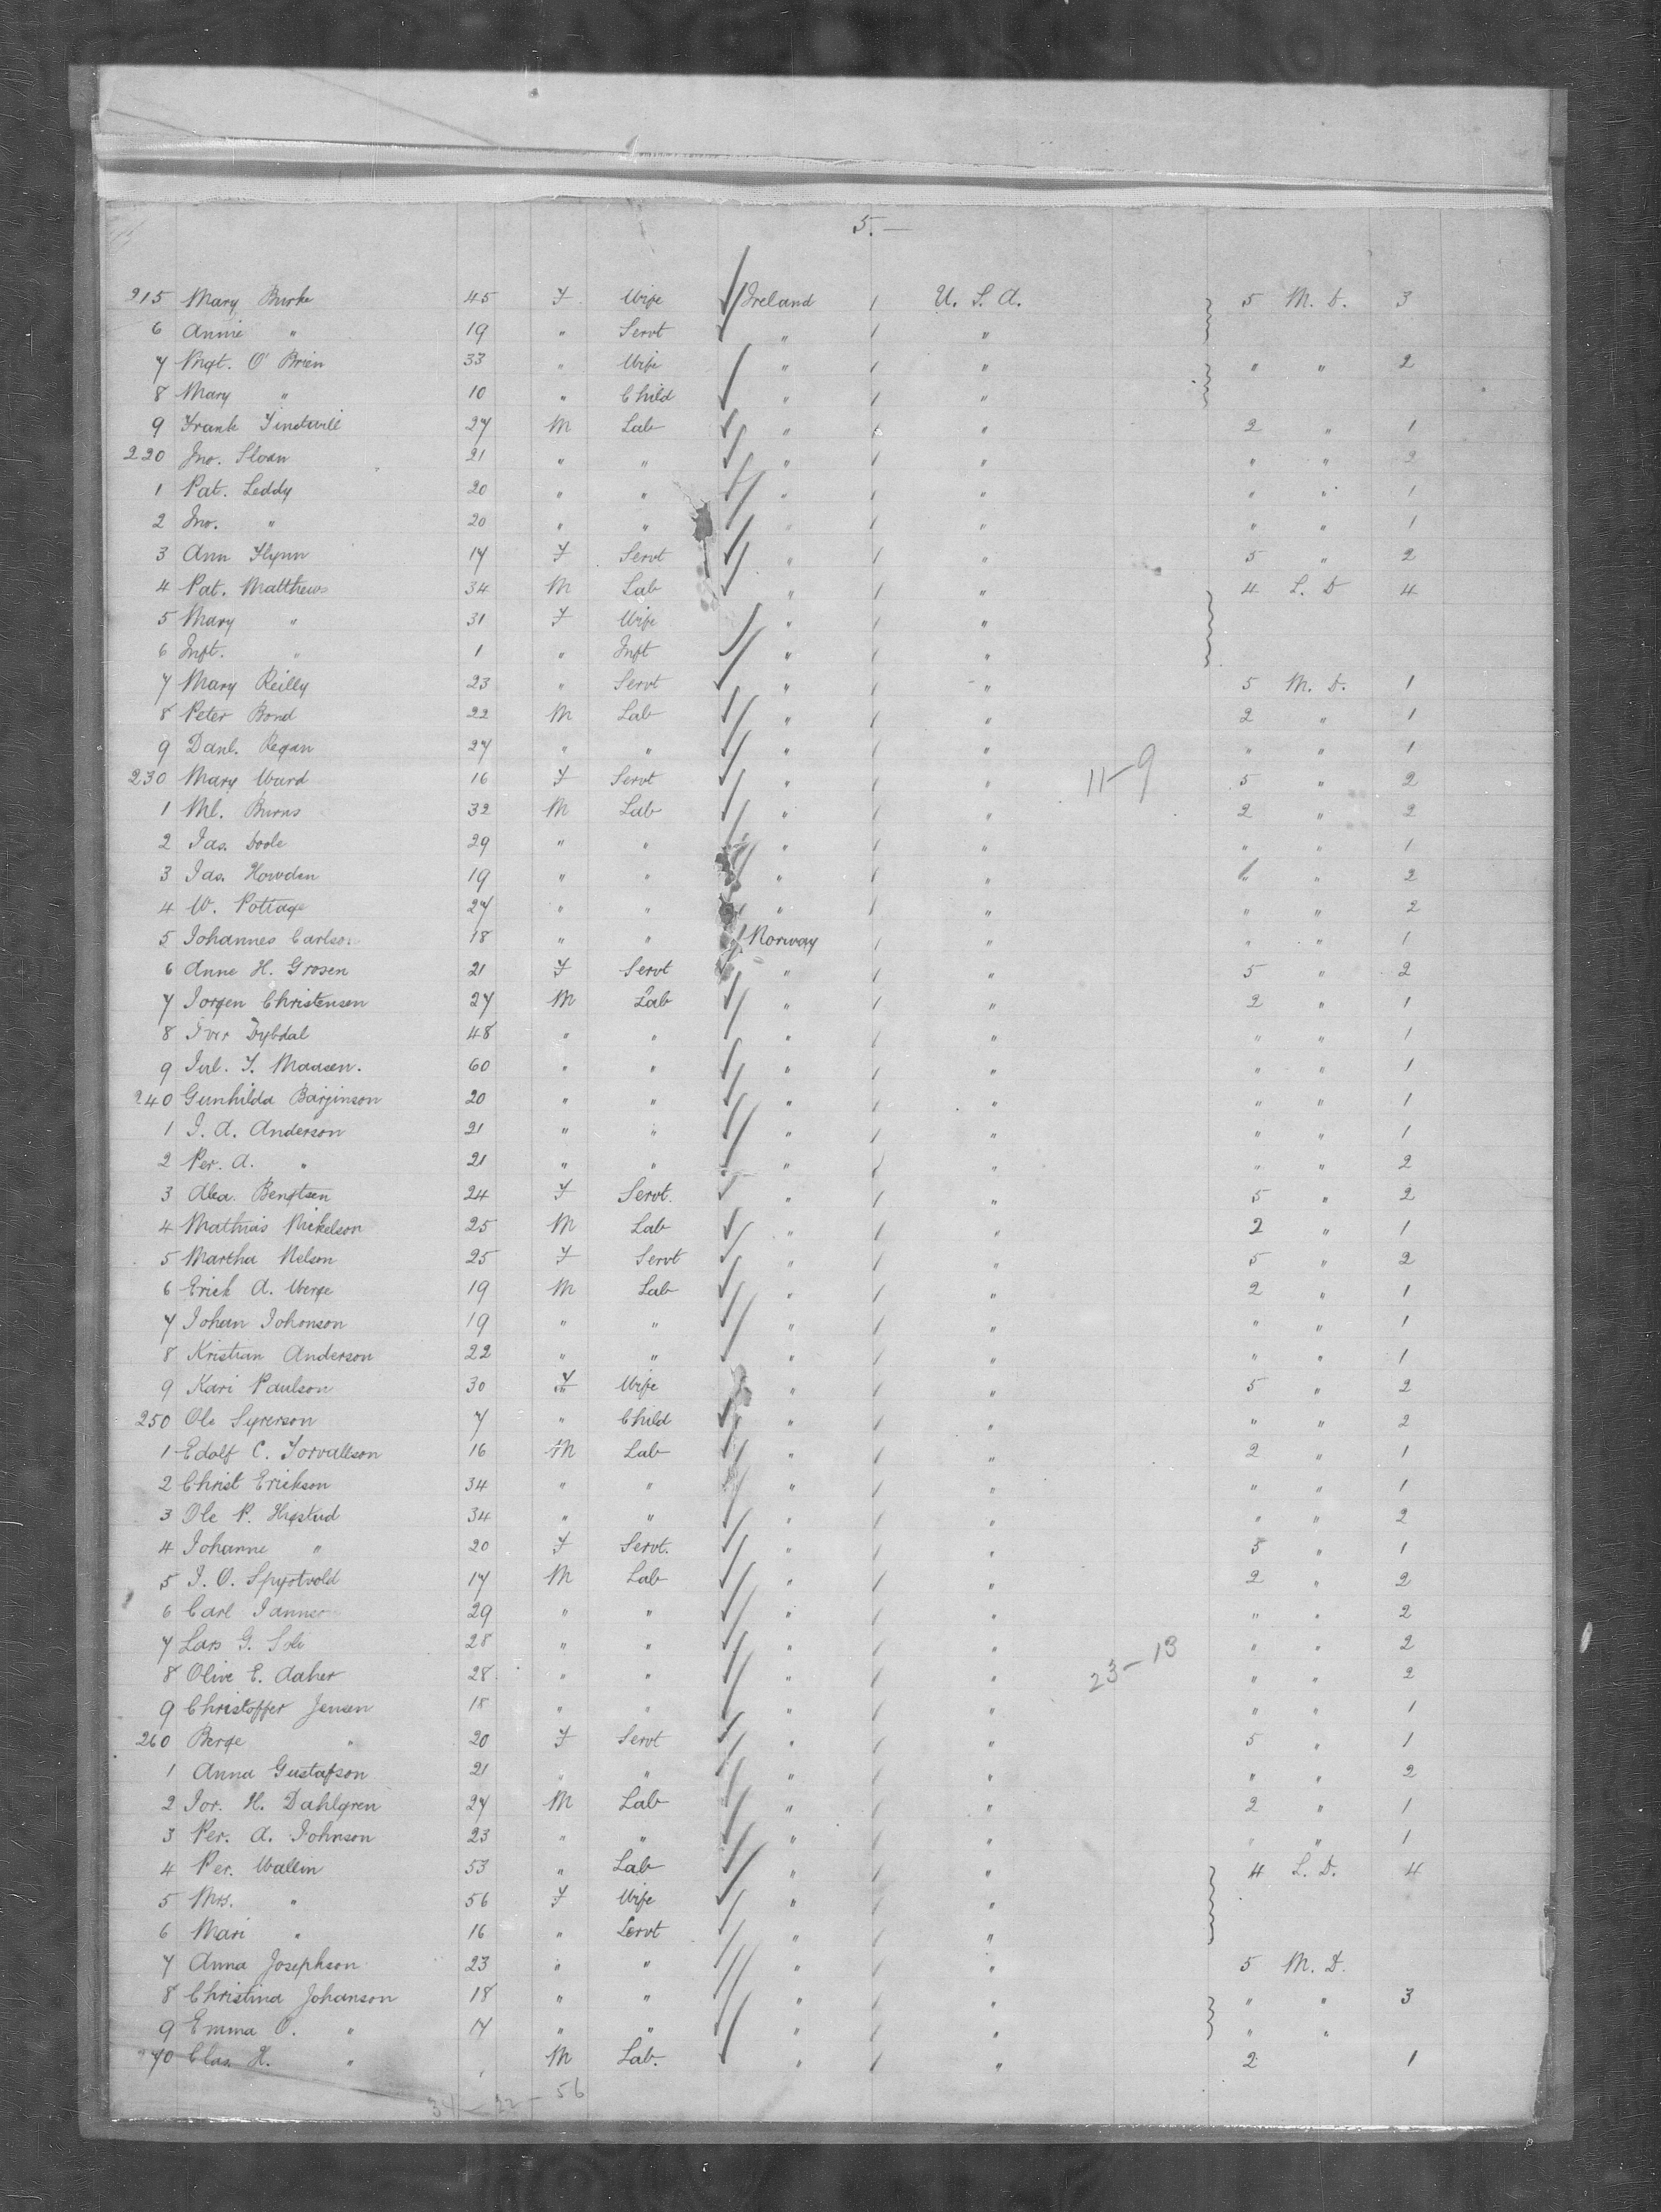 5.—
215 Mary Burke 45 F Wife Ireland / U. S. A. 5 M. D. 3
6 Annie " 19 " Servt " / "
7 Mgt. O'Brien 33 " Wife " / " " " 2
8 Mary " 10 " Child " / "
9 Frank 27 M Lab " / " 2 " 1
220 Jno. Sloan 21 " " " / " " " 2
1 Pat. Leddy 20 " " " / " " " 1
2 Jno. " 20 " " " / " " " 1
3 Ann Flynn 17 F Servt " / " 5 " 2
4 Pat. Matthews 34 M Lab " / " 4 L. D 4
5 Mary " 31 F Wife " / "
6 Inft. " 1 " Inft " / "
7 Mary Reilly 23 " Servt " / " 5 M. D. 1
8 Peter Bond 22 M Lab " / " 2 " 1
9 Danl. Regan 27 " " " / " " " 1
230 Mary Ward 16 F Servt " / " 11-9 5 " 2
1 Ml. Burns 32 M Lab " / " 2 " 2
2 Jas. Doole 29 " " " / " " " 1
3 Jas. Howden 19 " " " / " " " 2
4 W. Pottage 27 " " " / " " " 2
5 Johannes Carlson 18 " " Norway / " " " 1
6 Anne H. Grosen 21 F Servt " / " 5 " 2
7 Jorgen Christensen 27 M Lab " / " 2 " 1
8 Iver Dybdal 48 " " " / " " " 1
9 Jul. F. Madsen. 60 " " " / " " " 1
240 Gunhilda Barjinson 20 " " " / " " " 1
1 J. A. Anderson 21 " " " / " " " 1
2 Per. A. " 21 " " " / " " " 2
3 Alea. Bengtsen 24 F Servt. " / " 5 " 2
4 Mathias Mikelson 25 M Lab " / " 2 " 1
5 Martha Nelson 25 F Servt " / " 5 " 2
6 Erick A. Werge 19 M Lab " / " 2 " 1
7 Johan Johonson 19 " " " / " " " 1
8 Kristian Anderson 22 " " " / " " " 1
9 Kari Paulson 30 F Wife " / " 5 " 2
250 Ole Syrerson 7 " Child " / " " " 2
1 Edolf C. Torvallson 16 M Lab " / " 2 " 1
2 Christ Erickson 34 " " " / " " " 1
3 Ole P. Higstud 34 " " " / " " " 2
4 Johanne " 20 F Servt. " / " 5 " 1
5 J. O. Spyotvold 17 M Lab " / " 2 " 2
6 Carl 29 " " " / " " " 2
7 Lars G. Soli 28 " " " / " " " 2
8 Olive E. Aaher 28 " " " / " 23-13 " " 2
9 Christoffer Jensen 18 " " " / " " " 1
260 Berge " 20 F Servt " / " 5 " 1
1 Anna Gustafson 21 " " " / " " " 2
2 Jor. H. Dahlgren 27 M Lab " / " 2 " 1
3 Per. A. Johnson 23 " " " / " " " 1
4 Per. Wallin 53 " Lab " / " 4 L. D. 4
5 Mrs. " 56 F Wife " / "
6 Mari " 16 " Servt " / "
7 Anna Josephson 23 " " " / " 5 M. D.
8 Christina Johanson 18 " " " / " " " 3
9 Emma O. " 17 " " " / " " "
270 Clas. H. " M Lab. " / " 2 1
34 - 22 - 56